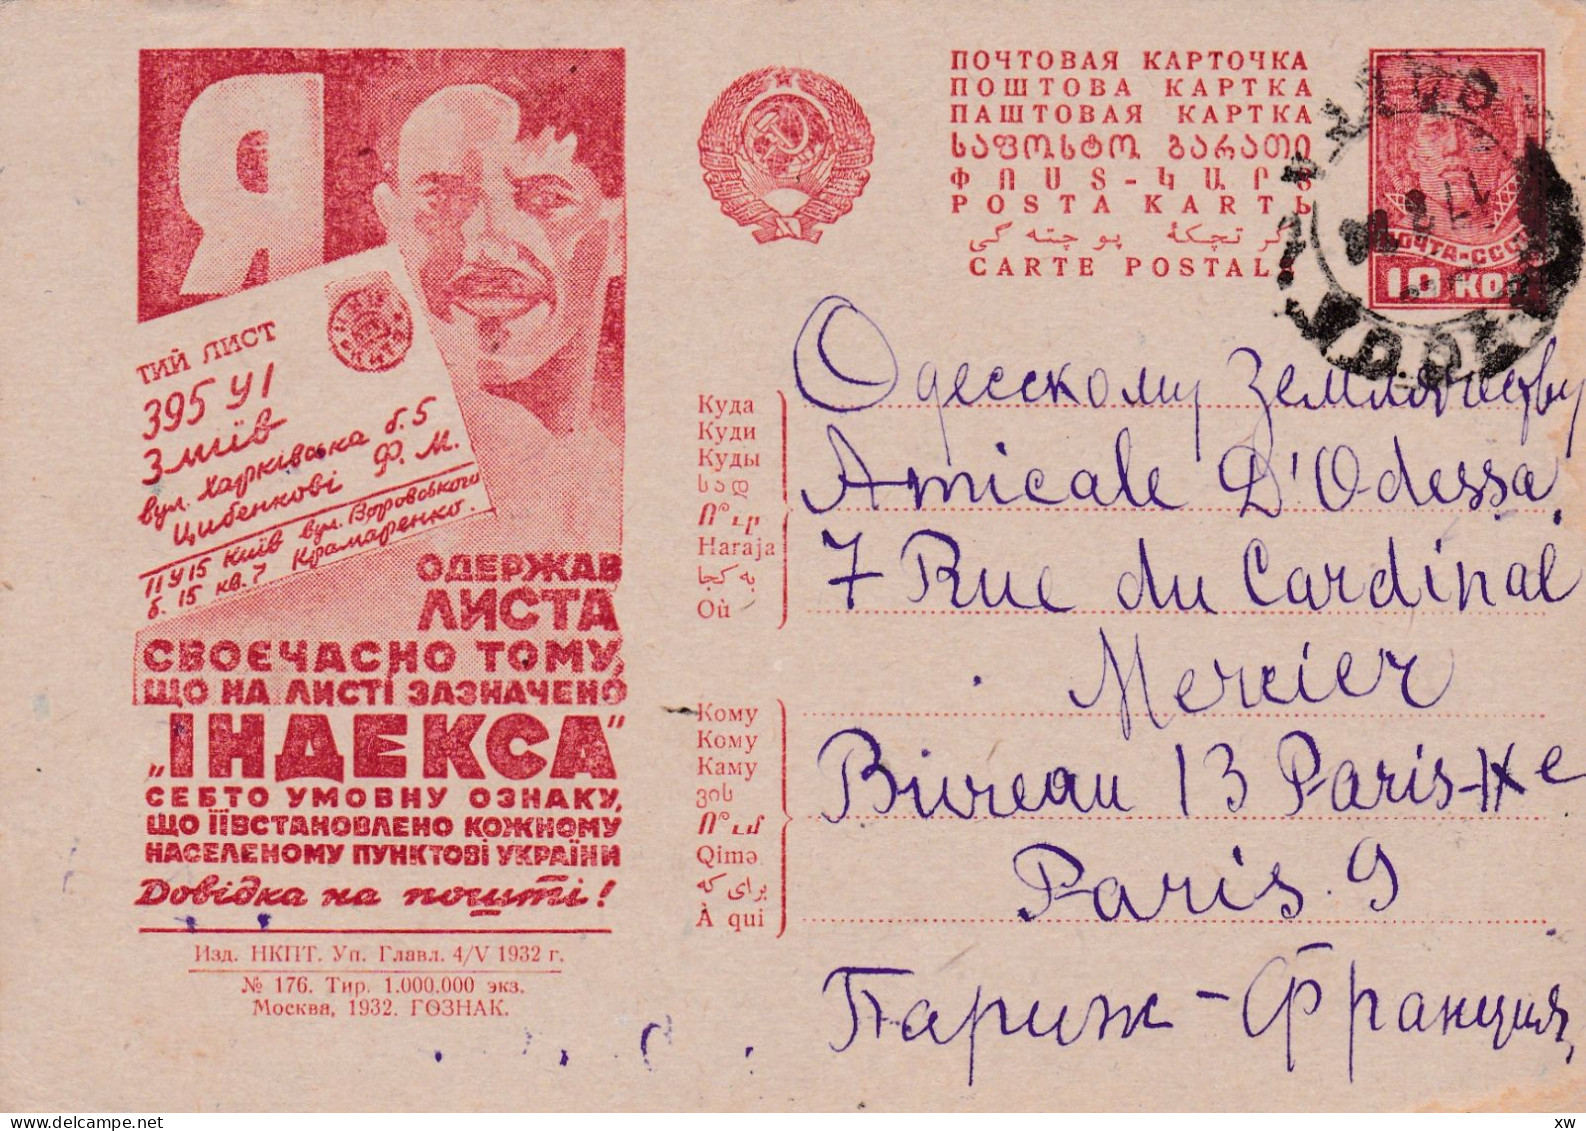 Я
ТИЙ ЛИСТ
395 У1
Зміїв
вул. Харківська б. 5
Цибенкові Ф. М.
11У15 Київ вул. Воровського
б. 15 кв. 7 Крамаренко.
ОДЕРЖАВ
ЛИСТА
СВОЄЧАСНО ТОМУ,
ЩО НА ЛИСТІ ЗАЗНАЧЕНО
„ІНДЕКСА"
СЕБТО УМОВНУ ОЗНАКУ,
ЩО ЇЇ ВСТАНОВЛЕНО КОЖНОМУ
НАСЕЛЕНОМУ ПУНКТОВІ УКРАЇНИ
Довідка на пошті!
Изд. НКПТ. Уп. Главл. 4/V 1932 г.
№ 176. Тир. 1.000.000 экз.
Москва, 1932. ГОЗНАК.
ПОЧТОВАЯ КАРТОЧКА
ПОШТОВА КАРТКА
ПАШТОВАЯ КАРТКА
ᲡᲐᲤᲝᲡᲢᲝ ᲑᲐᲠᲐᲗᲘ
ՓՈՍՏ-ԿԱՐՏ
POSTA KARTЬ
كرتچكهٔ پوچته گي
CARTE POSTALE
ПОЧТА-СССР
10 КОП
Куда
Куди
Куды
სად
Ո՞ւր
Haraja
به كجا
Où
Кому
Кому
Каму
ვის
Ո՞ւմ
Qimə
برای كه
À qui
Одесскому Землячеству
Amicale D'Odessa
7 Rue du Cardinal
Mercier
Bureau 13 Paris-IXe
Paris 9
Париж-Франция
xw